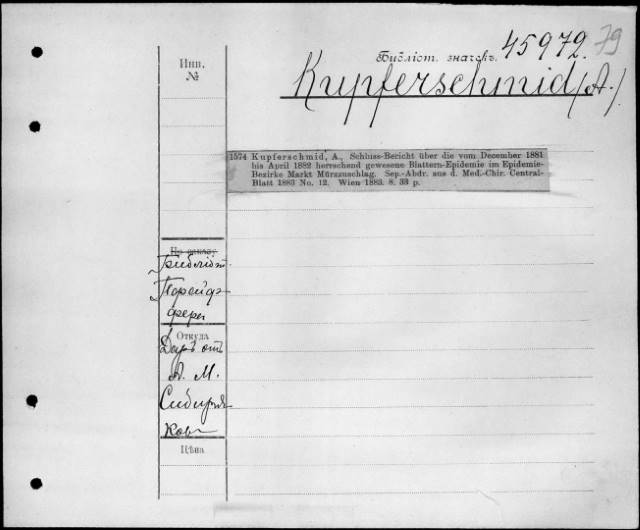 45972. 79
Библіот. значекъ.
Инв.
№
Kupferschmid (A.)
1574 Kupferschmid, A., Schluss-Bericht über die vom December 1881
bis April 1882 herrschend gewesene Blattern-Epidemie im Epidemie-
Bezirke Markt Mürzzuschlag. Sep.-Abdr. aus d. Med.-Chir. Central-
Blatt 1883 No. 12. Wien 1883. 8. 33 p.
Библіот.
Порейдэ
феры
Откуда
Даръ отъ
А. М.
Сибиря
кова
Цѣна